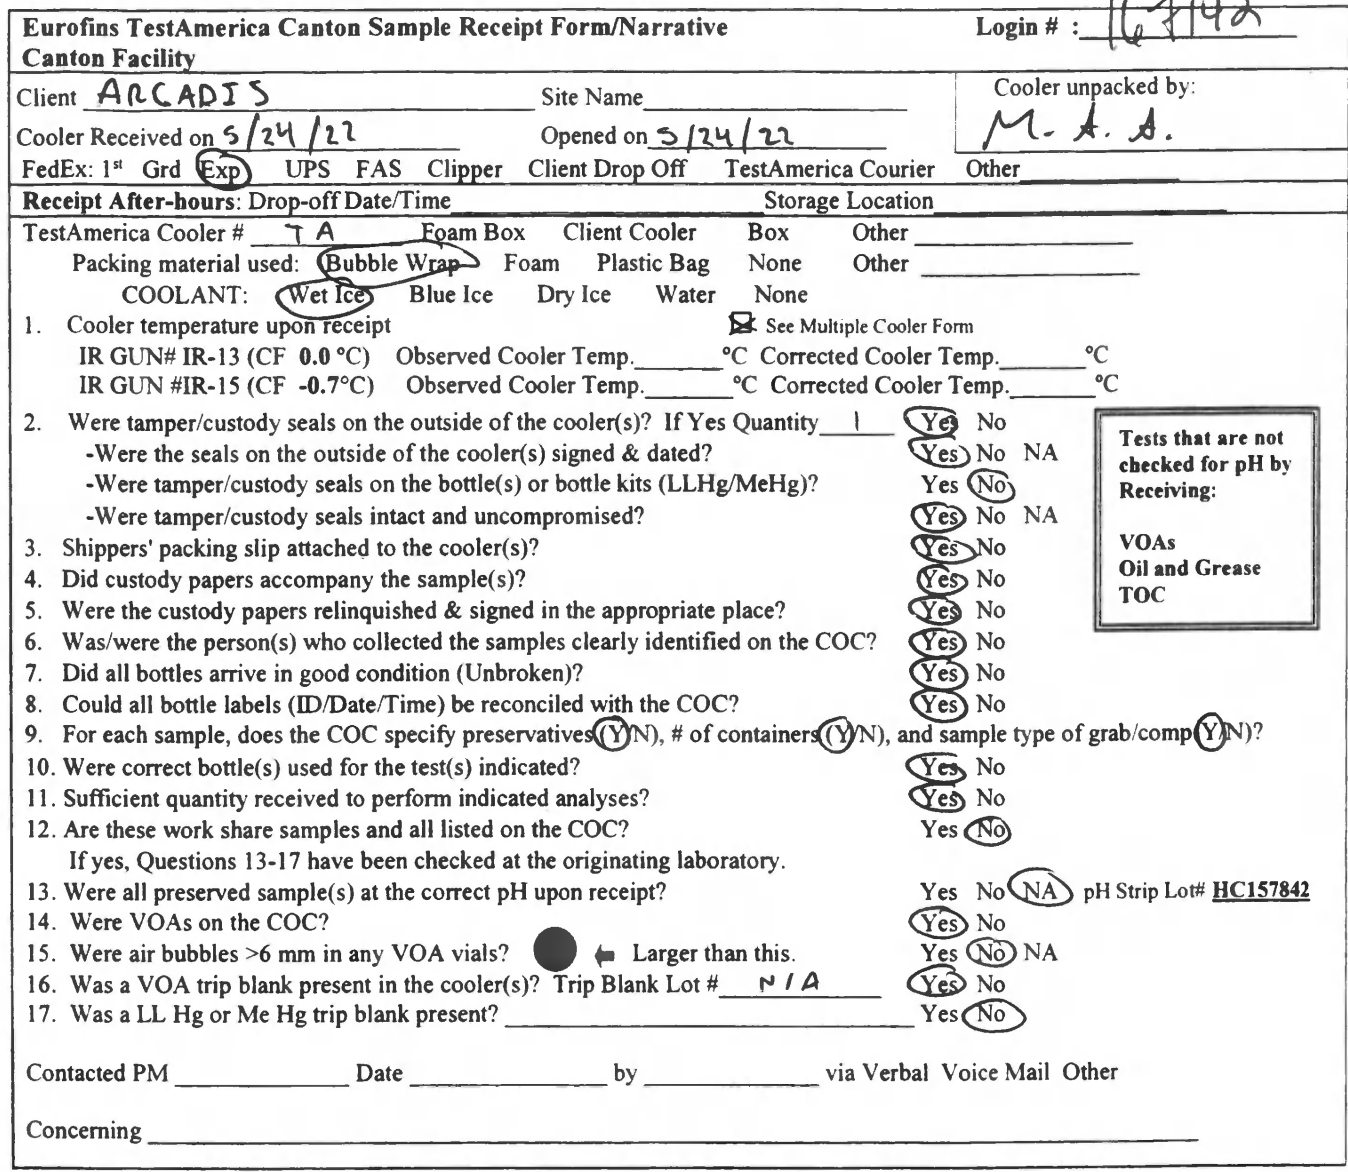 Eurofins TestAmerica Canton Sample Receipt Form/Narrative Login # :
Canton Facility
Client ARCADIS Site Name Cooler unpacked by:
Cooler Received on 5/24/22 Opened on 5/24/22 M. A. A.
FedEx: 1st Grd Exp UPS FAS Clipper Client Drop Off TestAmerica Courier Other
Receipt After-hours: Drop-off Date/Time Storage Location
TestAmerica Cooler # TA Foam Box Client Cooler Box Other
Packing material used: Bubble Wrap Foam Plastic Bag None Other
COOLANT: Wet Ice Blue Ice Dry Ice Water None
1. Cooler temperature upon receipt See Multiple Cooler Form
IR GUN# IR-13 (CF 0.0 °C) Observed Cooler Temp. °C Corrected Cooler Temp. °C
IR GUN #IR-15 (CF -0.7°C) Observed Cooler Temp. °C Corrected Cooler Temp. °C
2. Were tamper/custody seals on the outside of the cooler(s)? If Yes Quantity 1 Yes No
-Were the seals on the outside of the cooler(s) signed & dated? Yes No NA
-Were tamper/custody seals on the bottle(s) or bottle kits (LLHg/MeHg)? Yes No
-Were tamper/custody seals intact and uncompromised? Yes No NA
3. Shippers' packing slip attached to the cooler(s)? Yes No
4. Did custody papers accompany the sample(s)? Yes No
5. Were the custody papers relinquished & signed in the appropriate place? Yes No
6. Was/were the person(s) who collected the samples clearly identified on the COC? Yes No
7. Did all bottles arrive in good condition (Unbroken)? Yes No
8. Could all bottle labels (ID/Date/Time) be reconciled with the COC? Yes No
Tests that are not
checked for pH by
Receiving:
VOAs
Oil and Grease
TOC
9. For each sample, does the COC specify preservatives (Y/N), # of containers (Y/N), and sample type of grab/comp (Y/N)?
10. Were correct bottle(s) used for the test(s) indicated? Yes No
11. Sufficient quantity received to perform indicated analyses? Yes No
12. Are these work share samples and all listed on the COC? Yes No
If yes, Questions 13-17 have been checked at the originating laboratory.
13. Were all preserved sample(s) at the correct pH upon receipt? Yes No NA pH Strip Lot# HC157842
14. Were VOAs on the COC? Yes No
15. Were air bubbles >6 mm in any VOA vials? Larger than this. Yes No NA
16. Was a VOA trip blank present in the cooler(s)? Trip Blank Lot # N/A Yes No
17. Was a LL Hg or Me Hg trip blank present? Yes No
Contacted PM Date by via Verbal Voice Mail Other
Concerning